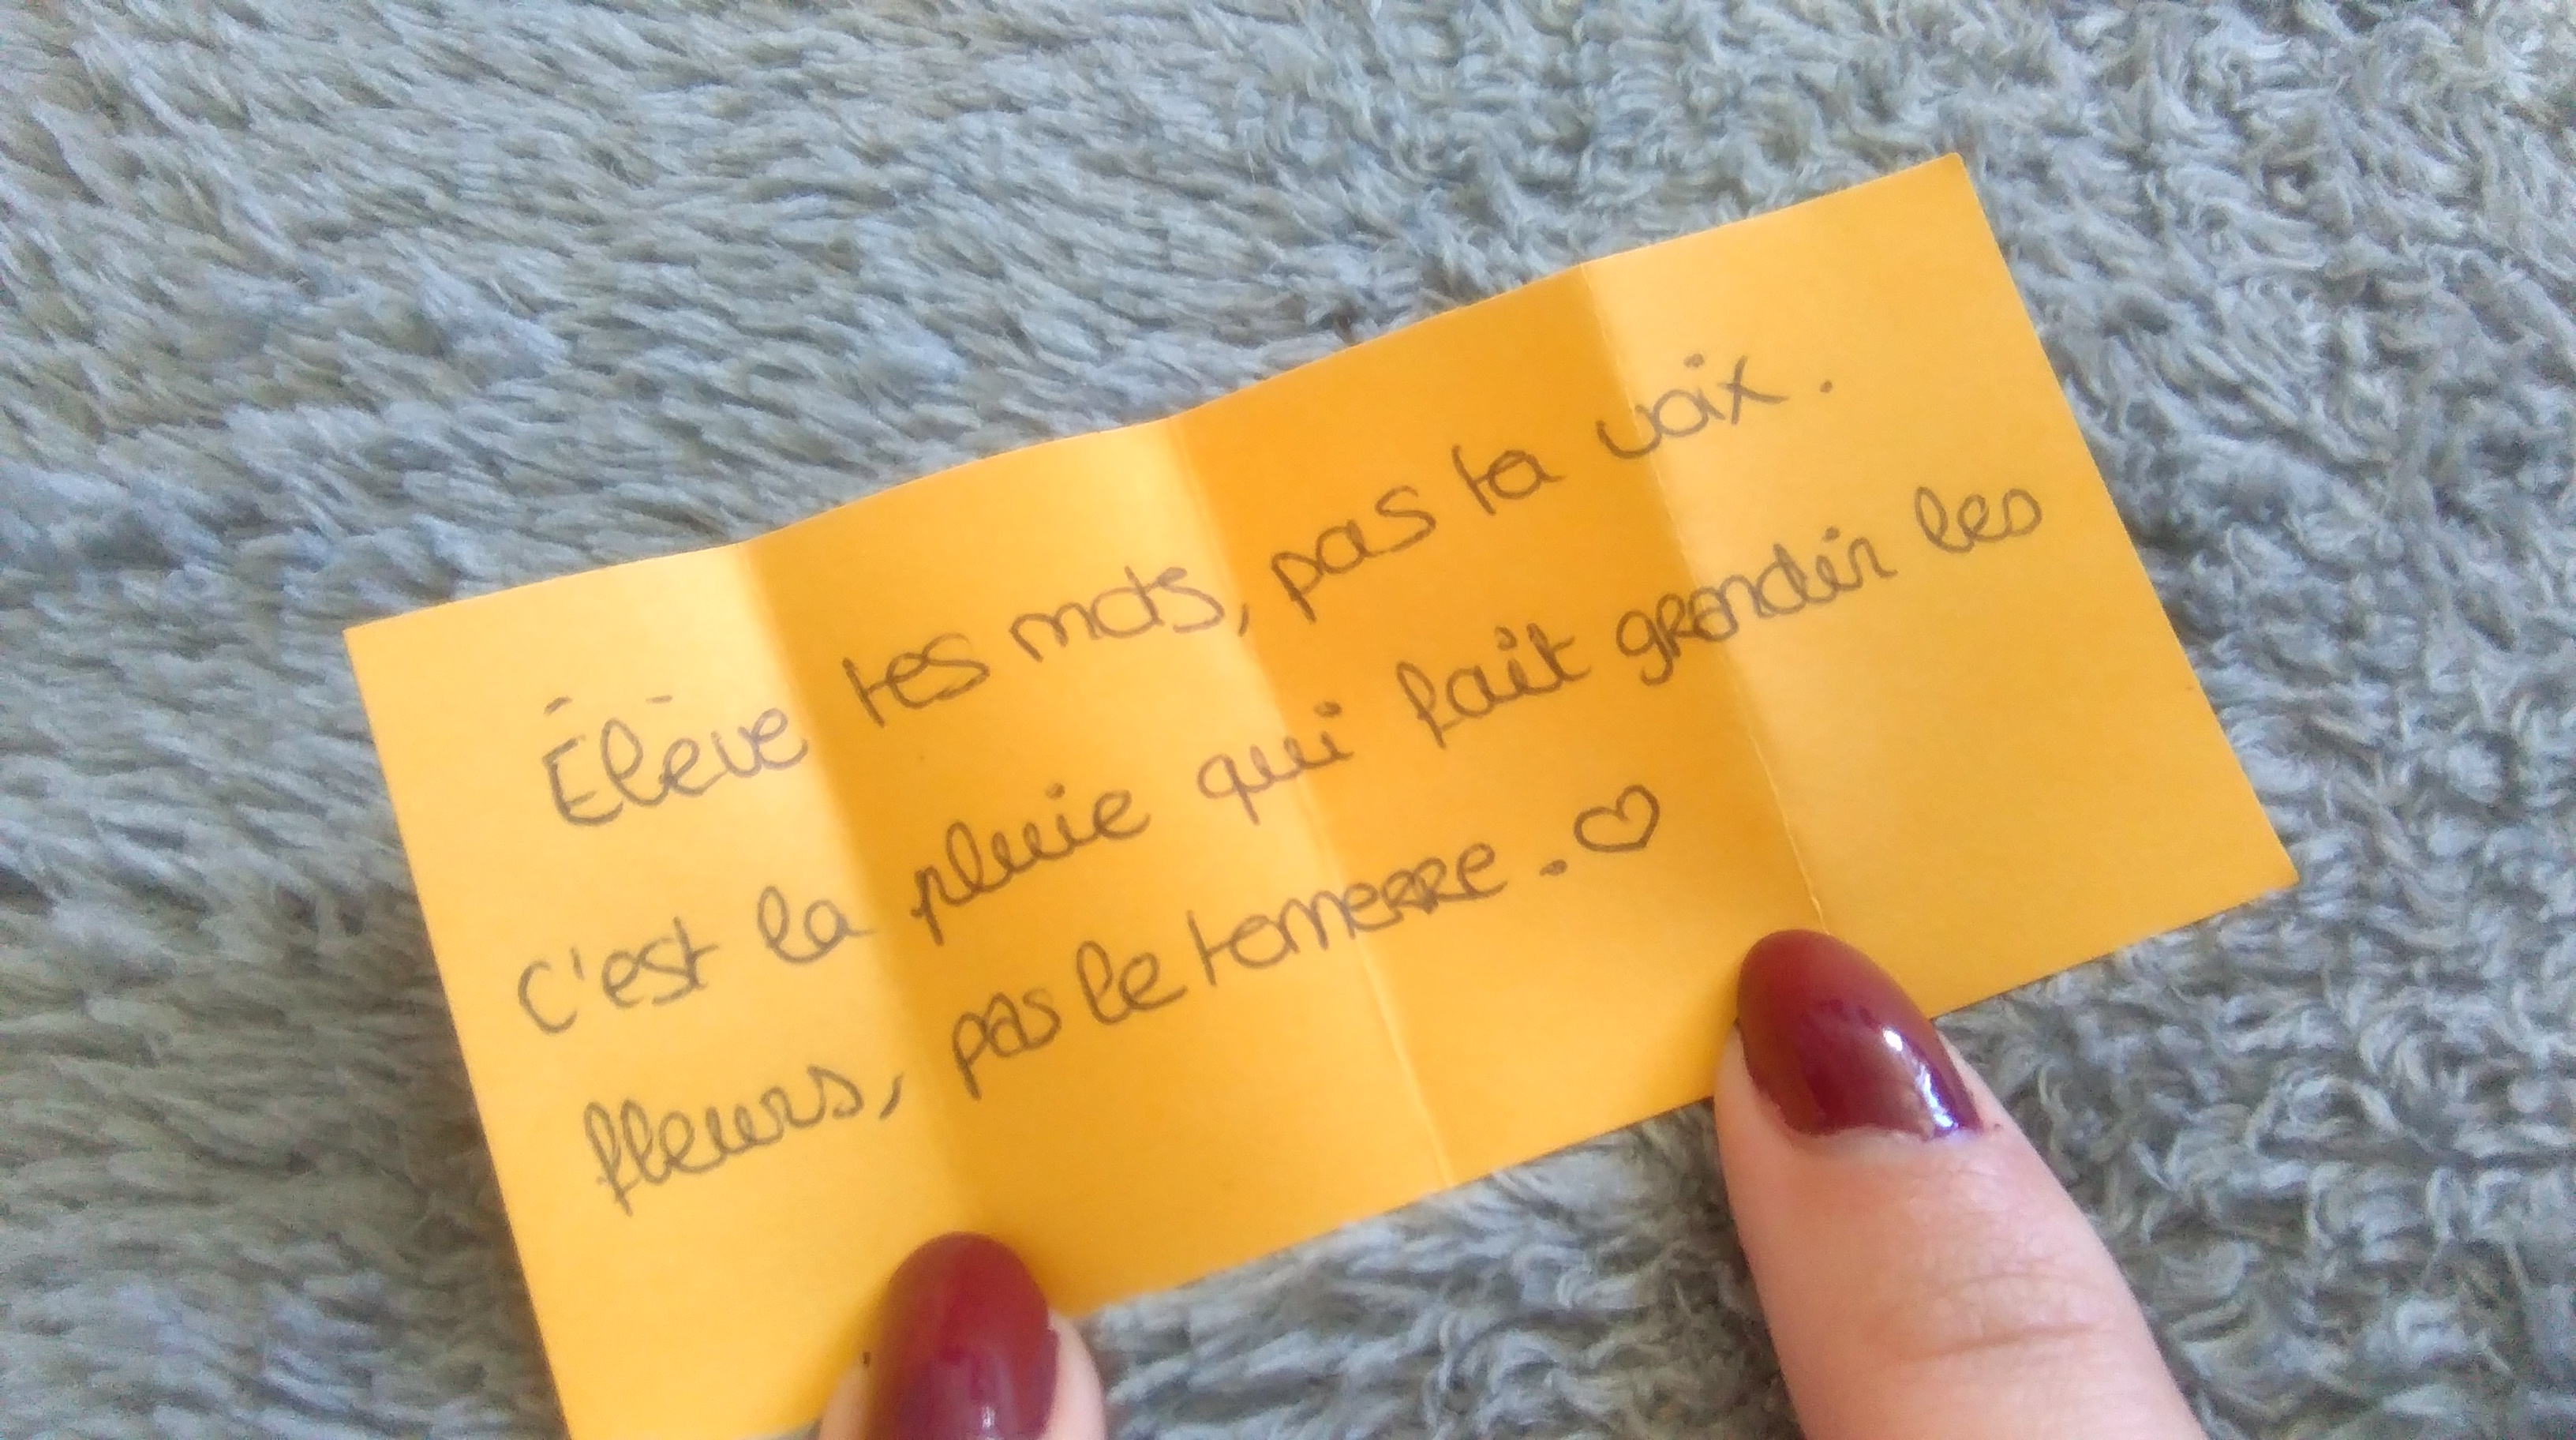 Élève tes mots, pas ta voix.
C'est la pluie qui fait grandir les
fleurs, pas le tonnerre. ♡